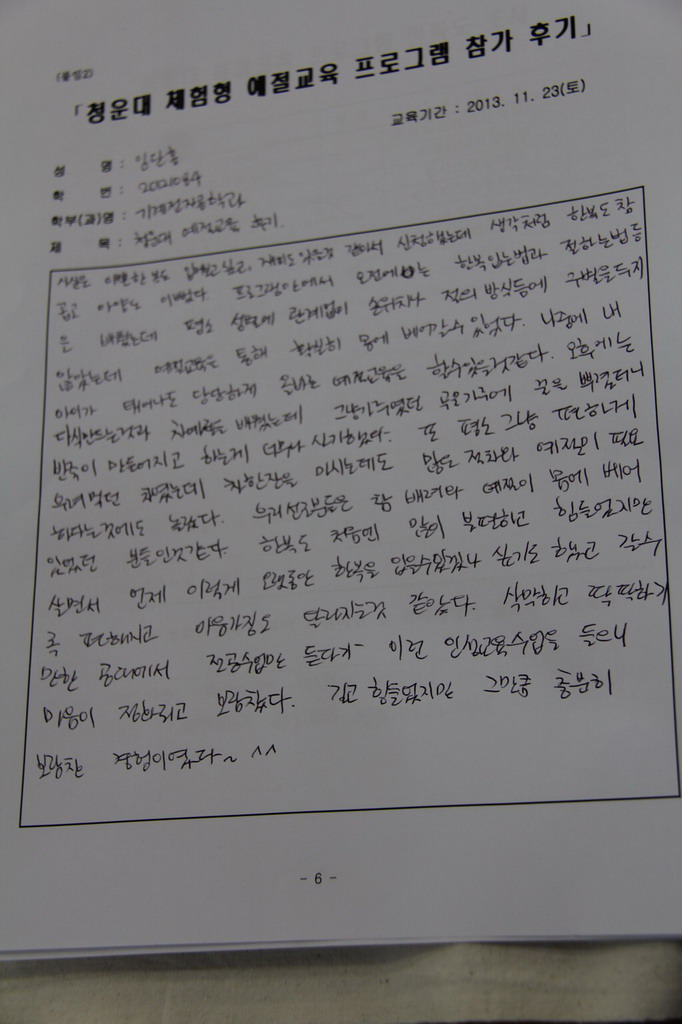 (붙임2)
「청운대 체험형 예절교육 프로그램 참가 후기」
교육기간 : 2013. 11. 23(토)
성 명 : 임단홍
학 번 :
학부(과)명 : 기계전자공학과
제 목 : 청운대 예절교육 후기.
사실은 예쁜 한복도 입해보고 싶고, 재미도 있을것 같아서 신청했는데 생각처럼 한복도 참
곱고 아양도 이뻤다. 프로그램안에서 오전에는 한복입는법과 절하는법등
을 배웠는데 평소 성별에 관계없이 손위치나 절의 방식등에 구별을두지
않았는데 예절교육을 통해 확실히 몸에 베어갈수 있었다. 나중에 내
아이가 태어나도 당당하게 올바른 예절교육을 할수있을것같다. 오후에는
다식만드는것과 차예절을 배웠는데 그냥가루였던 곡물가루에 꿀을 뿌렸더니
반죽이 만들어지고 하는게 너무나 신기했다. 또 평소 그냥 편하게
우려먹던 차였는데 차한잔을 마시는데도 많은 절차와 예절이 필요
하다는것에도 놀랐다. 우리선조분들은 참 배려와 예절이 몸에 베어
있었던 분들인것같다. 한복도 처음엔 많이 불편하고 힘들었지만
살면서 언제 이렇게 오랫동안 한복을 입을수있겠나 싶기도 하고 갈수
록 편해지고 마음가짐도 달라지는것 같았다. 삭막하고 딱딱하기
만한 공대에서 전공수업만 듣다가 이런 인성교육수업을 들으니
마음이 정화되고 보람찼다. 길고 힘들었지만 그만큼 충분히
보람찬 경험이였다~ ^^
- 6 -